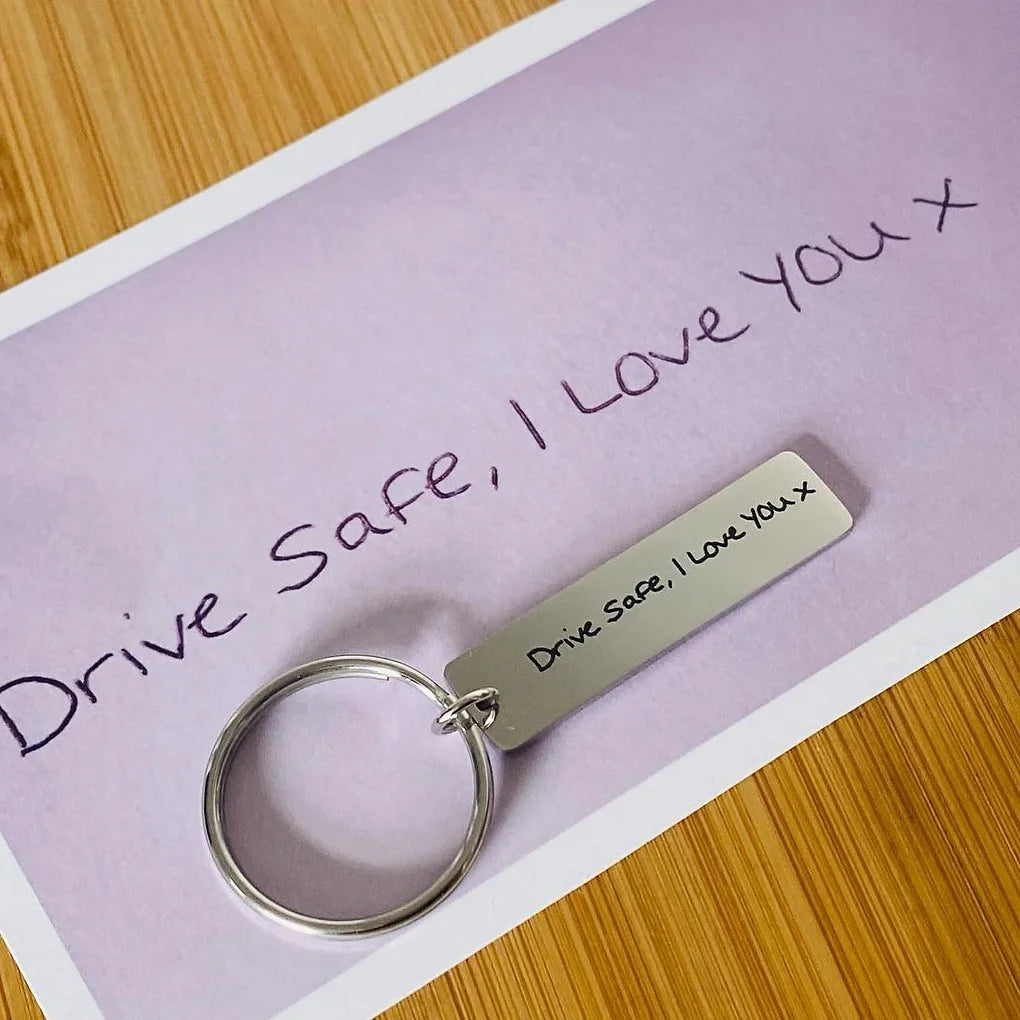 Drive Safe, I Love You x
Drive Safe, I Love You x